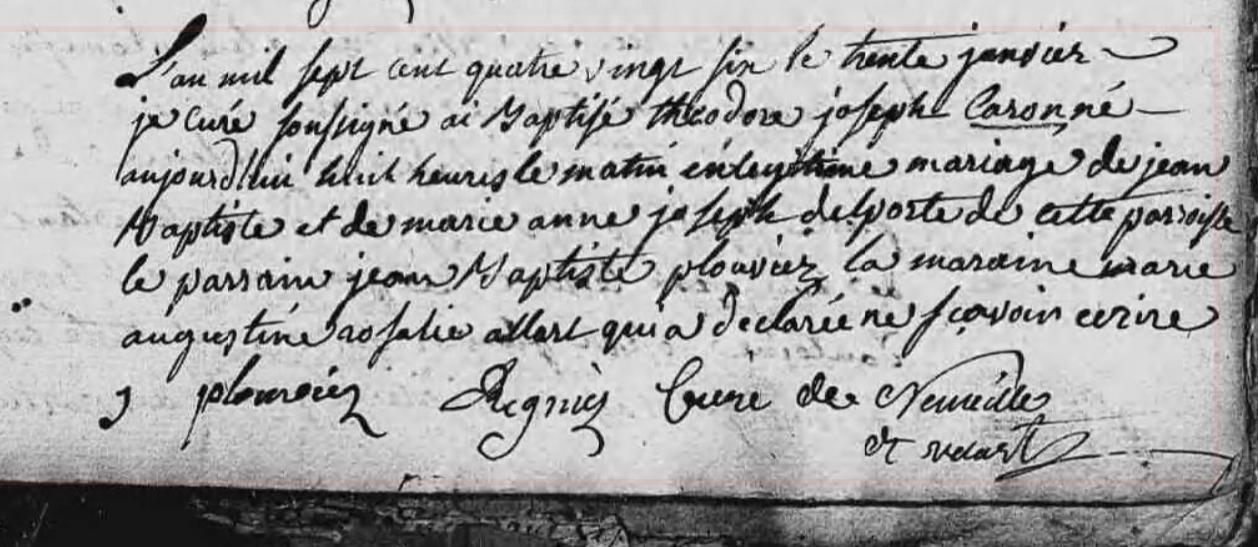 L'an mil sept cent quatre vingt six le trente janvier
je curé soussigné ai Baptisé theodore joseph Caron né
aujourd'hui huit heures le matin en legitime mariage de jean
Baptiste et de marie anne joseph delporte de cette paroisse
le parrain jean Baptiste plouviez la maraine marie
augustine rosalie allart qui a declarée ne scavoir ecrire
j plouviez Regniez Cure de Neuville
et